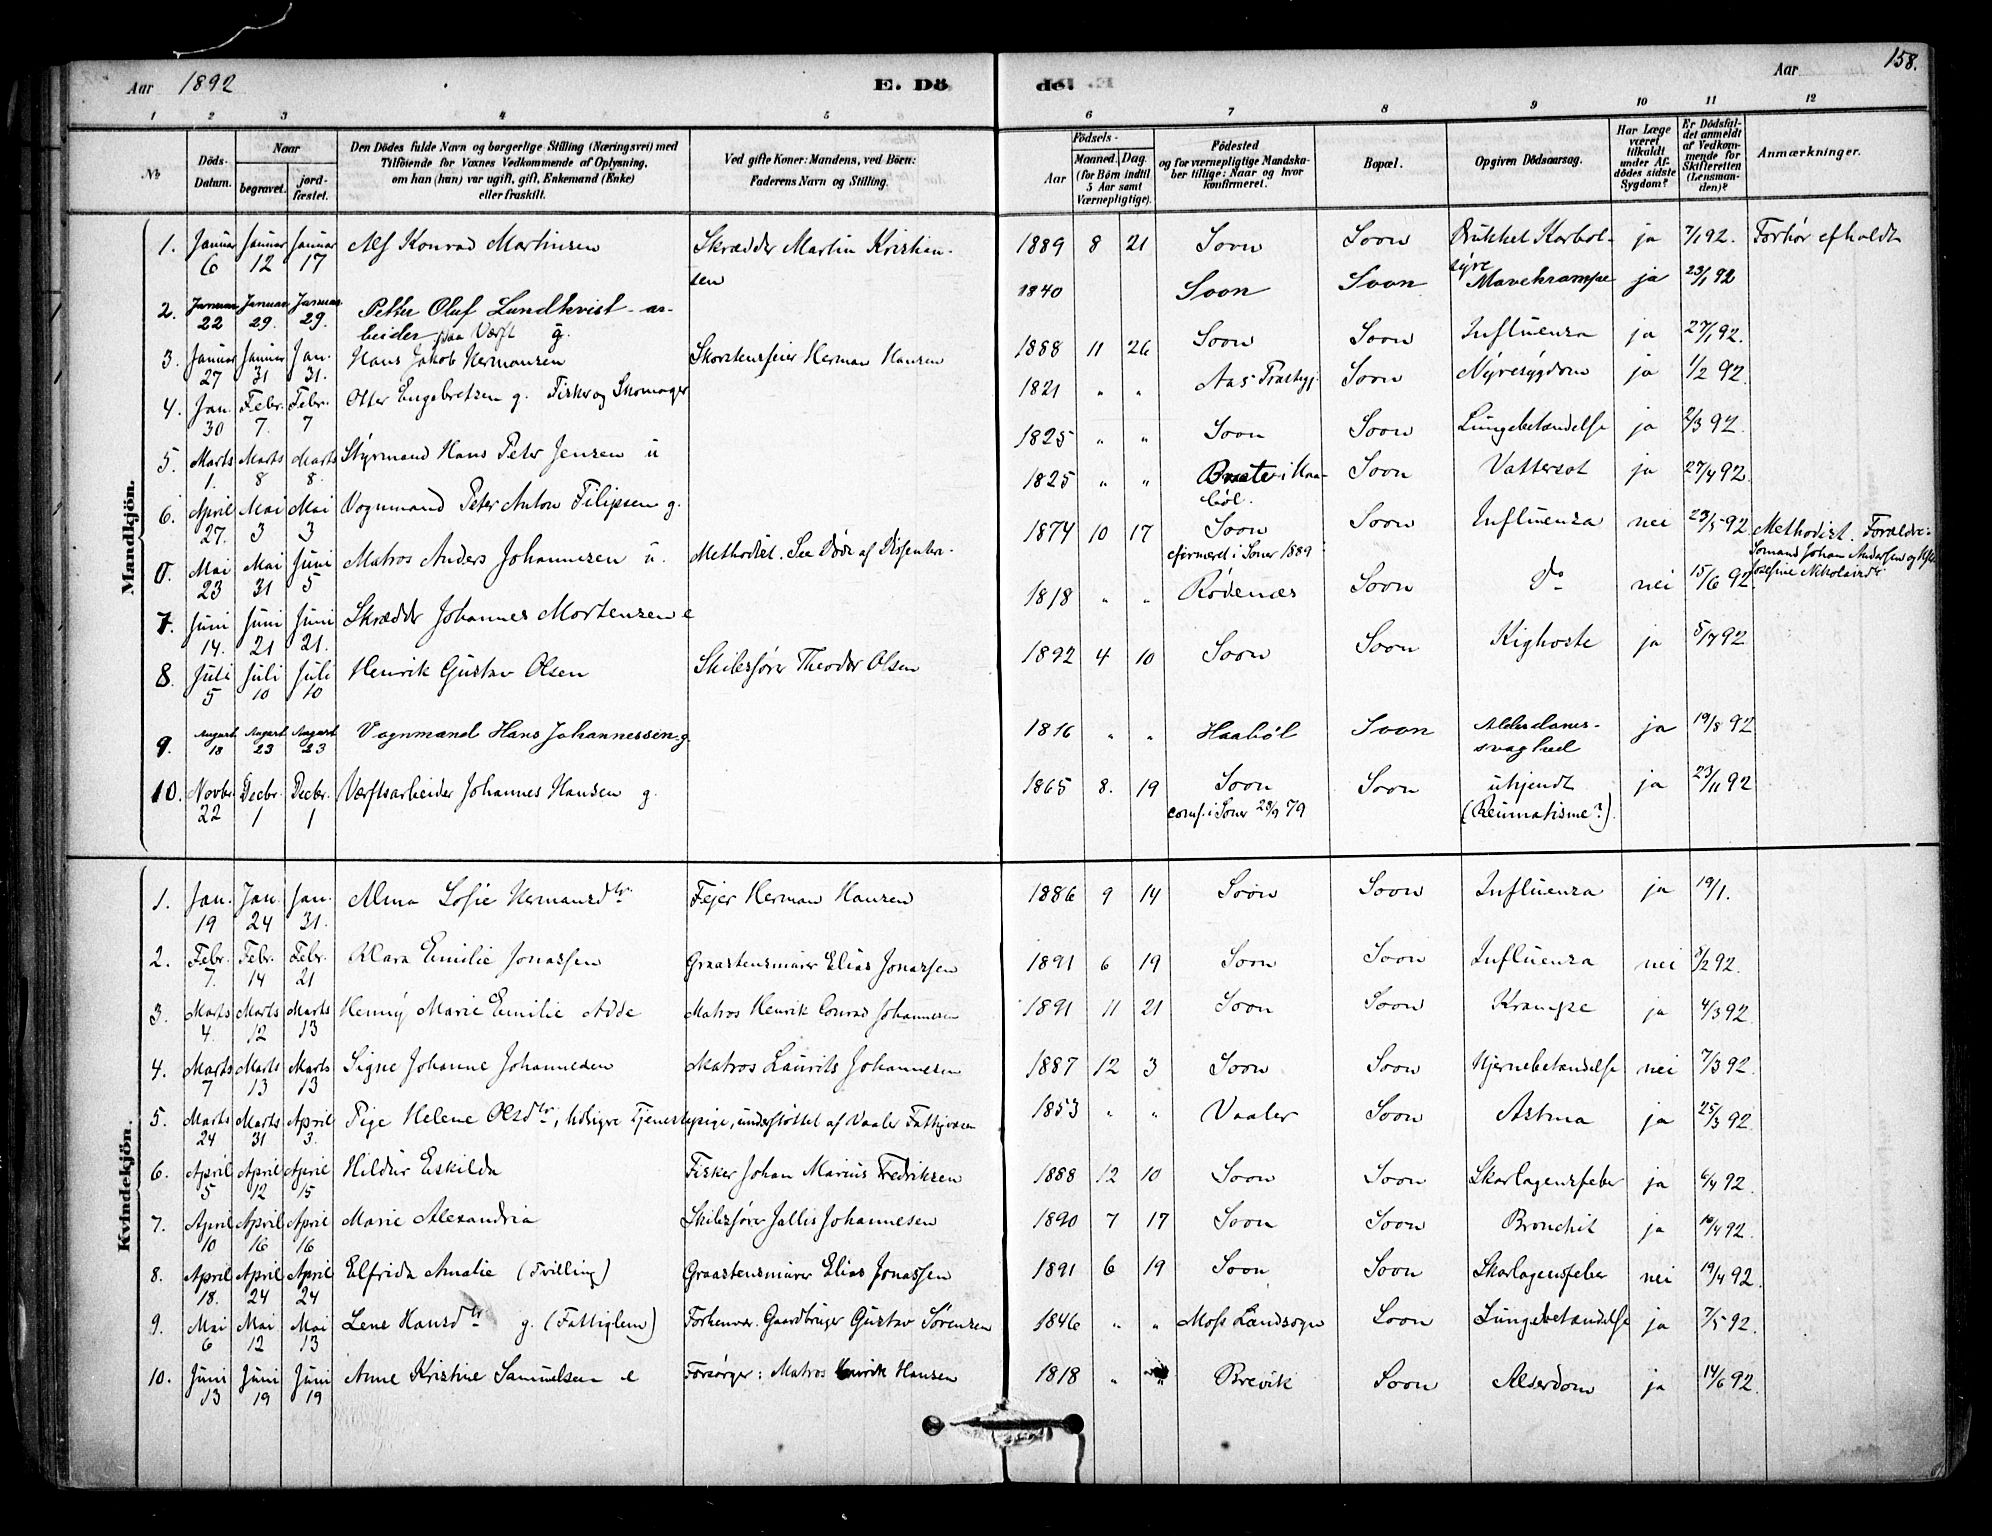 Aar 1892 E. Dö de! E. Aar 158.
1 2 3 4 5 6 7 8 9 10 11 12
No
Döds-Datum.
Naar
begravet.
jord-fæstet.
Den Dödes fulde Navn og borgerlige Stilling (Næringsvei) med
Tilföiende for Voxnes Vedkommende af Oplysning,
om han (hun) var ugift, gift, Enkemand (Enke)
eller fraskilt.
Ved gifte Koner: Mandens, ved Börn:
Faderens Navn og Stilling.
Födsels-
Aar
Maaned. Dag.
(for Börn indtil
5 Aar samt
Værnepligtige).
Födested
og for værnepligtige Mandska-
ber tillige: Naar og hvor
konfirmeret.
Bopæl.
Opgiven Dödsaarsag.
Har Læge
været
tilkaldt
under Af-
dödes sidste
Sygdom?
Er Dödsfal-
det anmeldt
af Vedkom-
mende for
Skifteretten
(Lensman-
den)?
Anmærkninger.
Mandkjön.
1. Januar 6 Januar 12 Januar 17 Alf Konrad Martinsen Skrædder Martin Kristian-
sen 1889 8 21 Soon Soon Drukket Karbol-
syre ja 7/1 92. Forhør afholdt
2. Januar 22 Januar 29. Januar 29. Petter Oluf Lundkvist - ar-
beider paa Værft g. 1840 Soon Soon Mavekrampe ja 23/1 92
3. Januar 27 Januar 31 Jan. 31. Hans Jakob Hermansen Skorstensfeier Herman Hansen 1888 11 26 Soon Soon Influenza ja 27/1 92.
4. Jan. 30 Febr. 7. Febr. 7 Otter Engebretsen g. Fisker og Skomager 1821 " " Aas Præstegj. Soon Nyresygdom ja 1/2 92.
5. Marts 1. Marts 8 Marts 8. Styrmand Hans Peter Jensen u 1825 " " Soon Soon Lungebetændelse ja 2/3 92.
6. April 27. Mai 3 Mai 3 Vognmand Peter Anton Filipsen g. 1825 " " Brate i Haa-
bøl. Soon Vattersot ja 27/4 92.
0. Mai 23 Mai 31 Juni 5 Matros Anders Johannesen u. Methodist. See Døde af Dissentere. 1874 10 17 Soon
cfirmeret i Soner 1889 Soon Influenza nei 23/5 92 Methodist. Forældre:
Sømand Johan Andersen og Hst.
Josefine Nikolaisdtr
7. Juni 14. Juni 21 Juni 21. Skrædder Johannes Mortensen e 1818 " " Rødenæs Soon Do nei 15/6 92
8. Juli 5 Juli 10 Juli 10 Henrik Gustav Olsen Skibsfører Theodor Olsen 1892 4 10 Soon Soon Kighoste ja 5/7 92
9. August 18 August 23 August 23 Vognmand Hans Johannessen g. 1816 " " Haabøl Soon Alderdoms-
svaghed ja 19/8 92
10. Novbr. 22 Decbr. 1 Decbr. 1 Værftsarbeider Johannes Hansen g. 1865 8. 19 Soon
conf. i Soner 28/9 79 Soon ukjendt
(Reumatisme?) ja 23/11 92
Kvindekjön.
1. Jan. 19 Jan. 24 Jan. 31. Alma Sofie Hermansdtr. Fejer Herman Hansen 1886 9 14 Soon Soon Influenza ja 19/1.
2. Febr. 7. Febr. 14 Febr. 21 Klara Emilie Jonassen Graastensmurer Elias Jonassen 1891 6 19 Soon Soon Influenza nei 8/2 92.
3. Marts 4. Marts 12 Marts 13 Henny Marie Emilie Adde Matros Henrik Conrad Johannesen 1891 11 21 Soon Soon Krampe ja 4/3 92.
4. Marts 7 Marts 13 Marts 13 Signe Johanne Johannesen Matros Laurits Johannesen 1887 12 3 Soon Soon Hjernebetændelse nei 7/3 92.
5. Marts 24 Marts 31 April 3. Pige Helene Olsdtr, tidligre Tjenestepige, understøttet af Vaaler Fattigvæsen 1853 " " Vaaler Soon Astma ja 25/3 92.
6. April 5 April 12 April 15 Hildur Eskilda Fisker Johan Marius Fredriksen 1888 12 10 Soon Soon Skarlagensfeber ja 6/4 92.
7. April 10 April 16 April 16 Marie Alexandria Skibsfører Jallis Johannesen 1890 7 17 Soon Soon Bronchit ja 16/4 92.
8. April 18. April 24 April 24 Elfrida Amalie (Tvilling) Graastensmurer Elias Jonassen 1891 6 19 Soon Soon Skarlagensfeber nei 19/4 92.
9. Mai 6 Mai 12 Mai 13 Lene Hansdtr g. (Fattiglem) Forhenvær. Gaardbruger Gustav Sørensen 1846 " " Moss Landsogn Soon Lungebetændelse ja 7/5 92.
10. Juni 13 Juni 19 Juni 19 Anne Kristine Samuelsen e Forsørger: Matros Henrik Hansen 1818 " " Brevik Soon Alderdom ja 14/6 92.